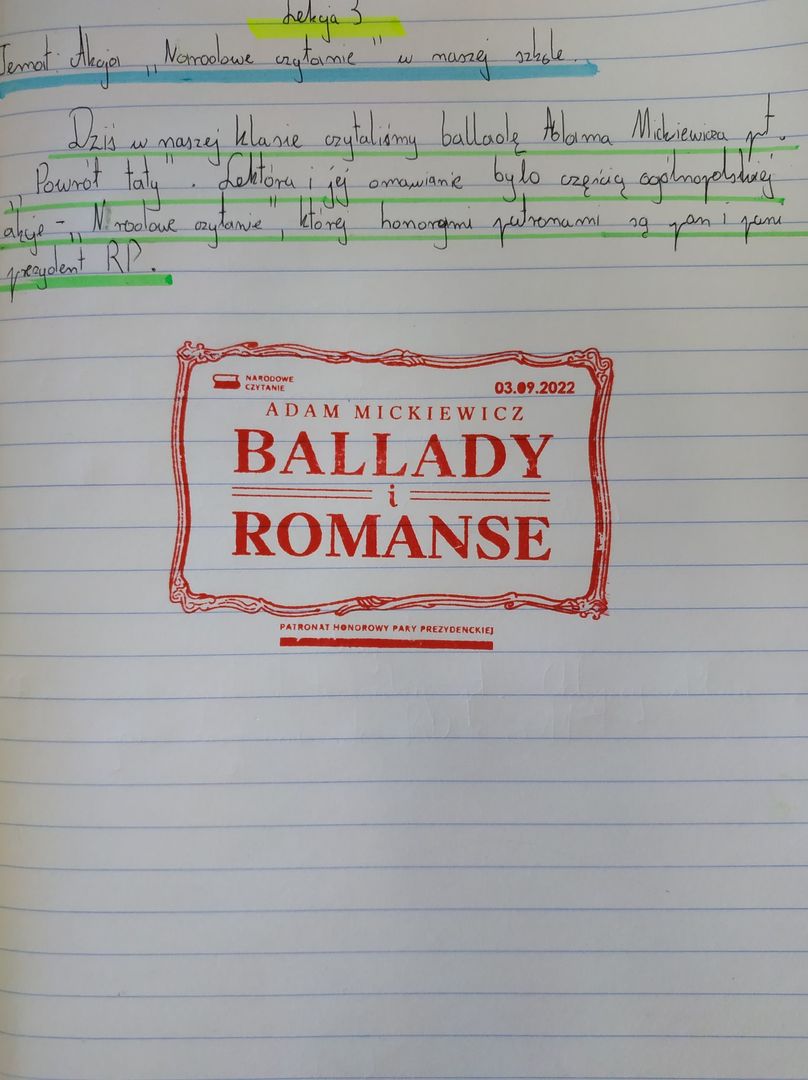 Lekcja 3
Temat: Akcja „Narodowe czytanie" w naszej szkole.
Dziś w naszej klasie czytaliśmy balladę Adama Mickiewicza pt.
„Powrót taty". Lektura i jej omawianie było częścią ogólnopolskiej
akcje - „N rodowe czytanie", której honorymi patronami są pan i pani
prezydent RP.
NARODOWE
CZYTANIE
03.09.2022
ADAM MICKIEWICZ
BALLADY
i
ROMANSE
PATRONAT HONOROWY PARY PREZYDENCKIEJ